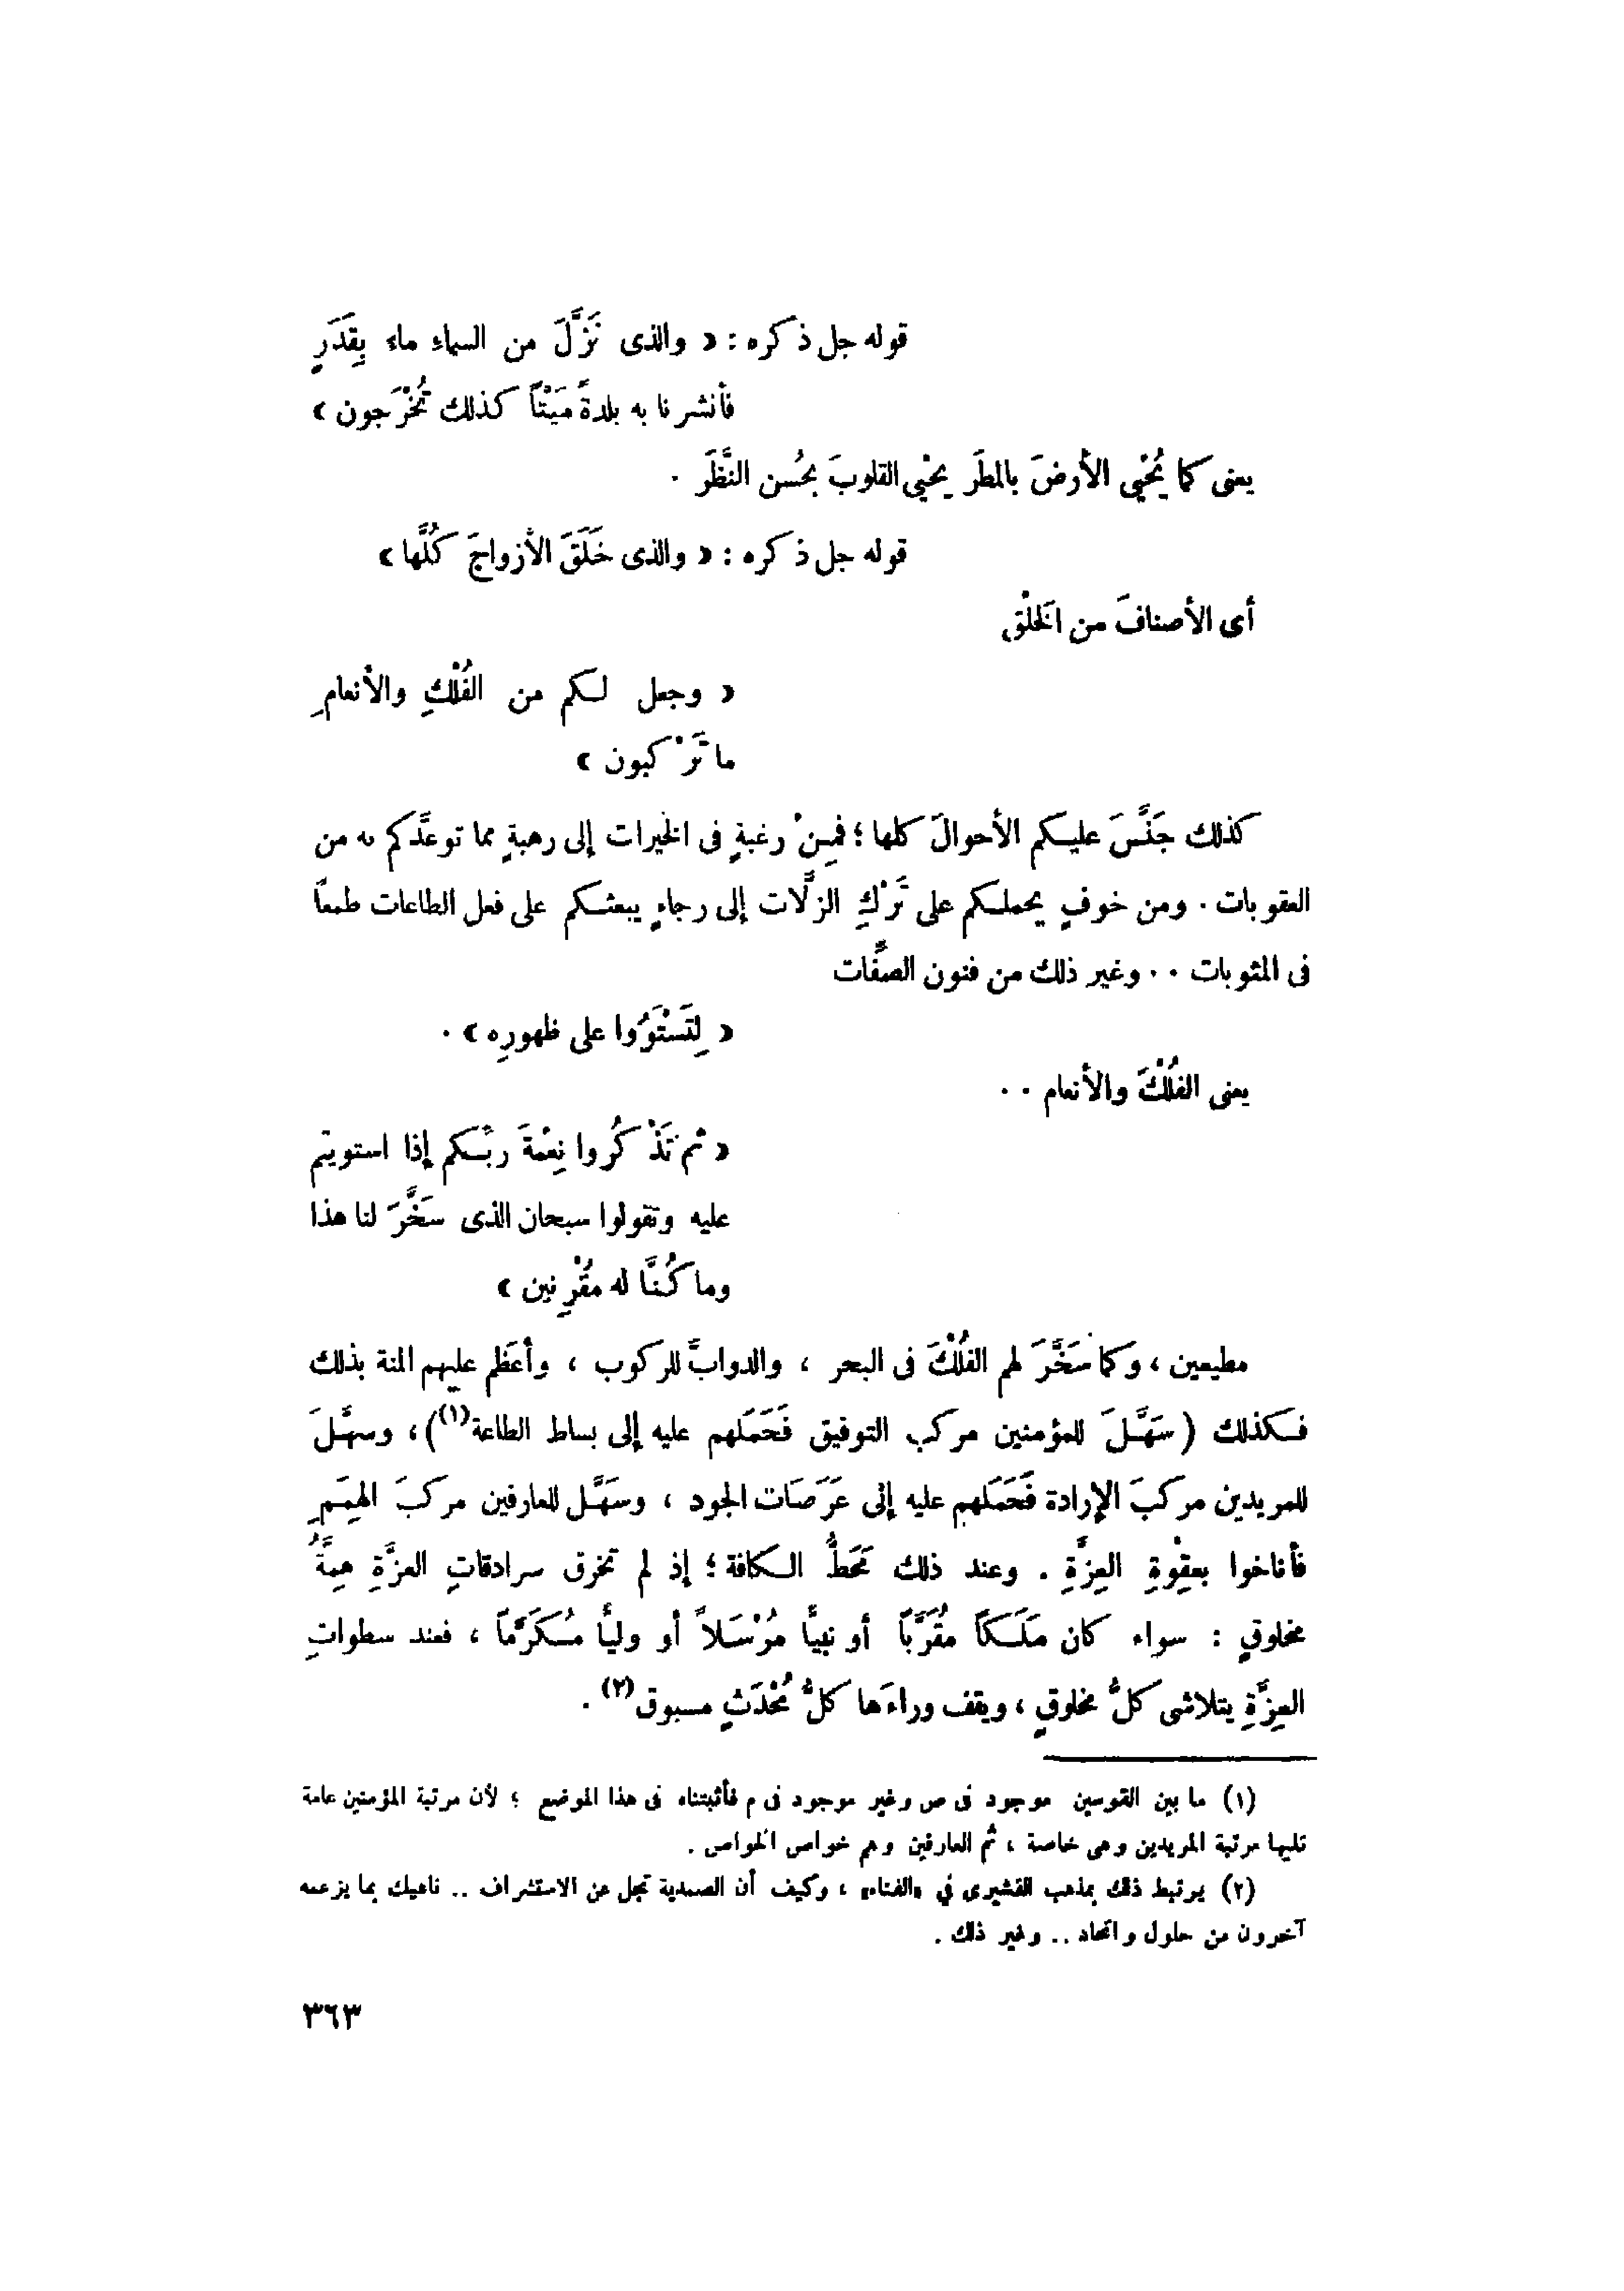 قوله جل ذكره : « والذى نَزَّلَ من السماءِ ماء بِقَدَرٍ
فأنشرنا به بلدةً مَيْتاً كذلك تُخْرَجون »
يعنى كما يُحْيِي الأرضَ بالمطَر يحْيِي القلوبَ بحُسن النَّظَر .
قوله جل ذكره : « والذى خَلَقَ الأزواجَ كُلَّها »
أى الأصنافَ من الخَلْقِ
« وجعل لكم من الفُلْكِ والأنعامِ
ما تَرْكبون »
كذلك جَنَّسَ عليكم الأحوالَ كلها ؛ فمِنْ رغبةٍ فى الخيرات إلى رهبةٍ مما توعَّدكم به من
العقوبات . ومن خوفٍ يحملكم على تَرْكِ الزلَّات إلى رجاءٍ يبعثكم على فعل الطاعات طمعاً
فى المثوبات .. وغير ذلك من فنون الصِّفات
« لِتَسْتَوُوا على ظهورِه » .
يعنى الفُلْكَ والأنعام ..
« ثم تَذْكُروا نِعْمَةَ ربِّكم إذا استويتم
عليه وتقولوا سبحان الذى سَخَّرَ لنا هذا
وما كُنَّا له مُقْرِنين »
مطيعين ، وكما سَخَّرَ لهم الفُلْكَ فى البحر ، والدوابَّ للركوب ، وأعْظَم عليهم المنة بذلك
فكذلك ( سَهَّلَ للمؤمنين مركب التوفيق فَحَمَلهم عليه إلى بساط الطاعة(١) ) ، وسهَّلَ
للمريدين مركبَ الإرادة فَحَمَلهم عليه إلى عَرَصَات الجود ، وسهَّل للعارفين مركبَ الهِمَمِ
فأناخوا بعقْوةِ العِزَّةِ . وعند ذلك مَحَطُّ الكافة ؛ إذ لم تخرق سرادقاتِ العزَّةِ هِمَّةُ
مخلوقٍ : سواء كان مَلَكاً مُقَرَّباً أو نبيًّا مُرْسَلاً أو وليًّا مُكَرَّماً ، فعند سطواتِ
العِزَّةِ يتلاشى كلُّ مخلوقٍ ، ويقف وراءَها كلُّ مُحْدَثٍ مسبوق(٢) .
(١) ما بين القوسين موجود فى ص وغير موجود فى م فأثبتناه فى هذا الموضع ؛ لأن مرتبة المؤمنين عامة
تليها مرتبة المريدين وهى خاصة ، ثم العارفين وهم خواص الخواص .
(٢) يرتبط ذلك بمذهب القشيرى في «الفناء» ، وكيف أن الصمدية تجل عن الاستشراف .. ناهيك بما يزعمه
آخرون من حلول واتحاد .. وغير ذلك .
٣٦٣